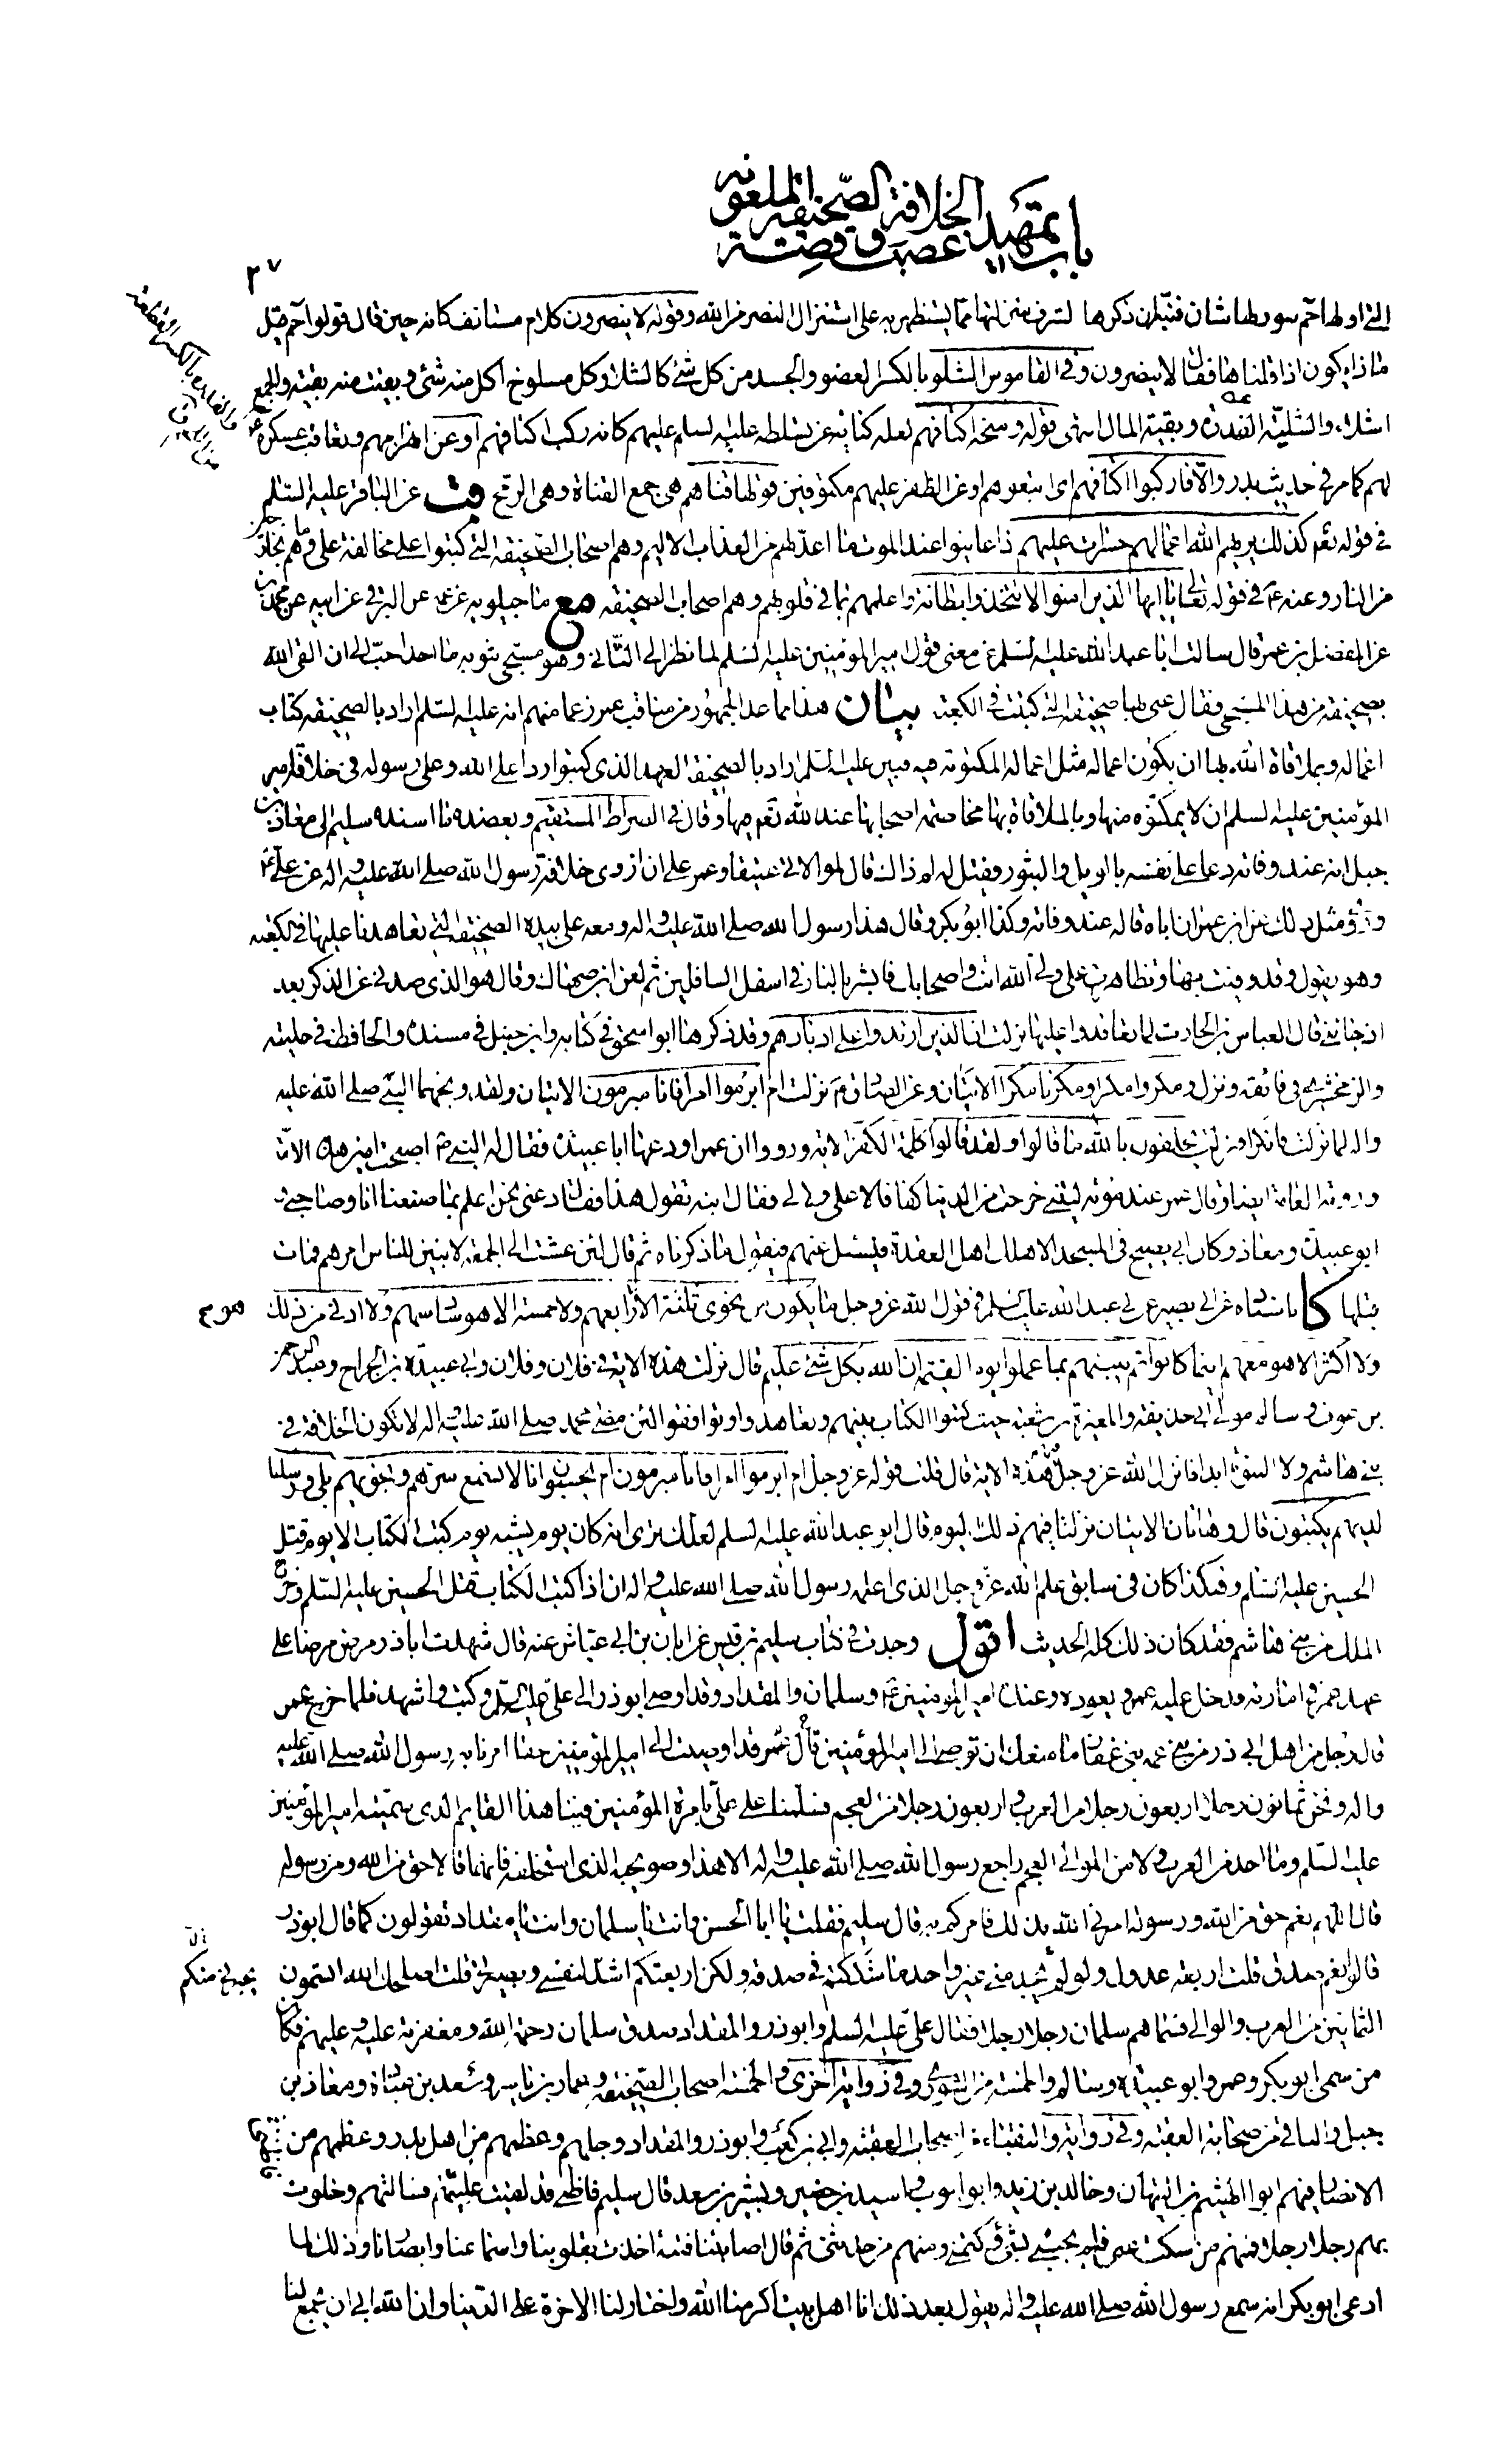 باب تمهيد غصب الخلافة وقصة الصحيفة الملعونة
٢٧
التي اولها حم سور لها شان فنبه ان ذكرها لشرف منزلتها مما يستظهر به على استنزال النصر من الله وقوله لا ينصرون كلام مستانف كانه حين قال قولوا حم قيل
ماذا يكون اذا قلناها فقال لا ينصرون وفي القاموس الشلو بالكسر العضو والجسد من كل شئ كالشلا وكل مسلوخ اكل منه شئ وبقيت منه بقية والجمع
اشلاء والشلية الفدرة وبقية المال انتهى قوله ومنحه اكتافهم لعله كناية عن تسلطه عليه السلم عليهم كانه ركب اكتافهم او عن انهزامهم وتعاقب عسكره
لهم كما مر في حديث بدر والا فاركبوا اكتافهم اى اتبعوهم او عن الظفر عليهم مكتوفين قولها قناهم هي جمع القناة وهى الرمح قب عن الباقر عليه السلم
في قوله تعم كذلك يريهم الله اعمالهم حسرات عليهم اذا عاينوا عند الموت ما اعد لهم من العذاب الاليم وهم اصحاب الصحيفة التي كتبوا على مخالفة علي وما هم بخارجين
من النار وعنه ع في قوله تعالى يا ايها الذين امنوا لا تتخذوا بطانة واعلمهم بما في قلوبهم وهم اصحاب الصحيفة مع ماجيلويه عن عمه عن البرقي عن ابيه عن محمد بن
عن المفضل بن عمر قال سالت ابا عبد الله عليه السلم عن معنى قول امير المؤمنين عليه السلم لما نظر الى الثاني وهو مسجى بثوبه ما احد احب الى ان القى الله
بصحيفته من هذا المسجى فقال عنى بها صحيفته التي كتبت في الكعبة بيان هذا مما عد الجمهور من مناقب عمر زعما منهم انه عليه السلم اراد بالصحيفة كتاب
اعماله وبملاقاة الله بها ان يكون اعماله مثل اعماله المكتوبة فيه فبين عليه السلم انه اراد بالصحيفة العهد الذى كتبوا ردا على الله وعلى رسوله في خلافة امير
المؤمنين عليه السلم ان لا يمكنوه منها وبالملاقاة بها مخاصمة اصحابها عند الله تعم فيها وقال في الصراط المستقيم ويعضده ما اسنده سليم الى معاذ بن
جبل انه عند وفاته دعا على نفسه بالويل والثبور فقيل له لم ذاك قال لموالاتي عتيقا وعمر على ان ازوى خلافة رسول الله صلى الله عليه واله عن علي ع
وروى مثل ذلك عن ابن عمر ان اباه قاله عند وفاته وكذا ابو بكر وقال هذا رسول الله صلى الله عليه واله ومعه علي بيده الصحيفة التي تعاهدنا عليها في الكعبة
وهو يقول وقد وفيت بها وتظاهرت على ولي الله انت واصحابك فابشر بالنار في اسفل السافلين ثم لعن ابن صهاك وقال هو الذى صدني عن الذكر بعد
اذ جائني قال العباس بن الحارث لما تعاقدوا عليها نزلت ان الذين ارتدوا على ادبارهم وقد ذكرها ابو اسحق في كتابه وابن حنبل في مسنده والحافظ في حليته
والزمخشري في فائقه ونزل ومكروا مكرا ومكرنا مكرا الايتان وعن الصادق ع نزلت ام ابرموا امرا فانا مبرمون الايتان ولقد وبخهما النبي صلى الله عليه
واله لما نزلت فانكرا فنزلت يحلفون بالله ما قالوا ولقد قالوا كلمة الكفر الاية ورووا ان عمر اودعها ابا عبيدة فقال له النبي ص اصبحت امين هذه الامة
وروته العامة ايضا وقال عمر عند موته ليتني خرجت من الدنيا كفافا لا علي ولا لي فقال ابنه تقول هذا فقال دعني نحن اعلم بما صنعنا انا وصاحبي و
ابو عبيدة ومعاذ وكان ابي يصيح في المسجد الا هلك اهل العقدة فيسئل عنهم فيقول ما ذكرناه ثم قال لئن عشت الى الجمعة لابينن للناس امرهم فمات
قبلها كا باسناده عن ابي بصير عن ابي عبد الله عليه السلم في قول الله عز وجل ما يكون من نجوى ثلثة الا هو رابعهم ولا خمسة الا هو سادسهم ولا ادنى من ذلك
ولا اكثر الا هو معهم اينما كانوا ثم ينبئهم بما عملوا يوم القيمة ان الله بكل شئ عليم قال نزلت هذه الاية في فلان وفلان وابي عبيدة بن الجراح وعبد الرحمن
بن عوف وسالم مولى ابي حذيفة والمغيرة بن شعبة حيث كتبوا الكتاب بينهم وتعاهدوا وتوافقوا لئن مضى محمد صلى الله عليه واله لا تكون الخلافة في
بني هاشم ولا النبوة ابدا فانزل الله عز وجل فيهم هذه الاية قال قلت قوله عز وجل ام ابرموا امرا فانا مبرمون ام يحسبون انا لا نسمع سرهم ونجويهم بلى ورسلنا
لديهم يكتبون قال وهاتان الايتان نزلتا فيهم ذلك اليوم قال ابو عبد الله عليه السلم لعلك ترى انه كان يوم يشبه يوم كتب الكتاب الا يوم قتل
الحسين عليه السلم وهكذا كان في سابق علم الله عز وجل الذى اعلمه رسول الله صلى الله عليه واله ان اذا كتب الكتاب قتل الحسين عليه السلم وخرج
الملك من بني هاشم فقد كان ذلك كله الحديث اقول وجدت في كتاب سليم بن قيس عن ابان بن ابي عياش عنه قال شهدت اباذر مرض مرضا على
عهد عمر في امارته فدخل عليه عمر يعوده وعنده امير المؤمنين ع وسلمان والمقداد وقد اوصى ابوذر الى علي عليه السلم وكتب واشهد فلما خرج عمر
قال رجل من اهل ابي ذر من بني عمه بني غفار ما منعك ان توصى الى امير المؤمنين عمر قال قد اوصيت الى امير المؤمنين حقا امرنا به رسول الله صلى الله عليه
واله ونحن ثمانون رجلا اربعون رجلا من العرب واربعون رجلا من العجم فسلمنا على علي بامرة المؤمنين فينا هذا القايم الذى سميته امير المؤمنين
عليه السلم وما احد من العرب ولا من الموالي العجم راجع رسول الله صلى الله عليه واله الا هذا وصويحبه الذى استخلفه فانهما قالا حق من الله ومن رسوله
قال اللهم نعم حق من الله ورسوله امرني الله بذلك فامركم به قال سليم فقلت يا ابا الحسن وانت يا سلمان وانت يا مقداد تقولون كما قال ابوذر
قالوا نعم صدق قلت اربعة عدول ولو لم يحدثني غير واحد ما شككت في صدقه ولكن اربعتكم اشد لنفسي وبصيرتي قلت اصلحك الله اتسمون
الثمانين من العرب والموالي فسماهم سلمان رجلا رجلا فقال علي عليه السلم وابوذر والمقداد صدق سلمان رحمة الله ومغفرته عليه وعليهم فكان
من سمى ابو بكر وعمر وابو عبيدة وسالم والخمسة من الشورى وفي رواية اخرى والخمسة اصحاب الصحيفة وعمار بن ياسر وسعد بن عبادة ومعاذ بن
جبل والباقي من صحابة العقبة وفي رواية والنقباء من اصحاب العقبة وابي بن كعب وابوذر والمقداد وجلهم وعظمهم من اهل بدر وعظمهم من
الانصار فيهم ابو الهيثم بن التيهان وخالد بن زيد وابو ايوب واسيد بن حضير وبشير بن سعد قال سليم فاظنني قد لقيت عليتهم فسالتهم وخلوت
بهم رجلا رجلا فمنهم من سكت عني فلم يجبني بشئ وكتمني ومنهم من حدثني ثم قال اصابتنا فتنة اخذت بقلوبنا واسماعنا وابصارنا وذلك لما
ادعى ابو بكر انه سمع رسول الله صلى الله عليه واله يقول بعد ذلك انا اهل بيت اكرمنا الله واختار لنا الاخرة على الدنيا وان الله ابى ان يجمع لنا